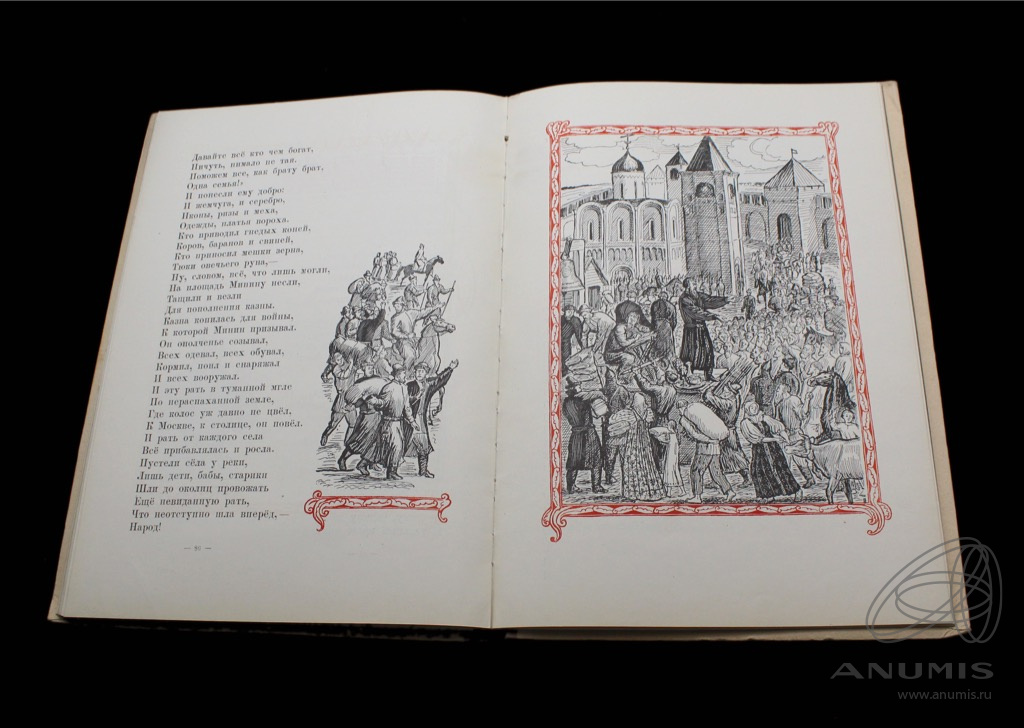 Давайте всё кто чем богат,
Ничуть, нимало не тая.
Поможем все, как брату брат,
Одна семья!»
И понесли ему добро:
И жемчуга, и серебро,
Иконы, ризы и меха,
Одежды, платья вороха.
Кто приводил гнедых коней,
Коров, баранов и свиней,
Кто приносил мешки зерна,
Тюки овечьего руна,—
Ну, словом, всё, что лишь могли,
На площадь Минину несли,
Тащили и везли
Для пополнения казны.
Казна копилась для войны,
К которой Минин призывал.
Он ополченье созывал,
Всех одевал, всех обувал,
Кормил, поил и снаряжал
И всех вооружал.
И эту рать в туманной мгле
По нераспаханной земле,
Где колос уж давно не цвёл,
К Москве, к столице, он повёл.
И рать от каждого села
Всё прибавлялась и росла.
Пустели сёла у реки,
Лишь дети, бабы, старики
Шли до околиц провожать
Ещё невиданную рать,
Что неотступно шла вперёд,—
Народ!
ANUMIS
www.anumis.ru